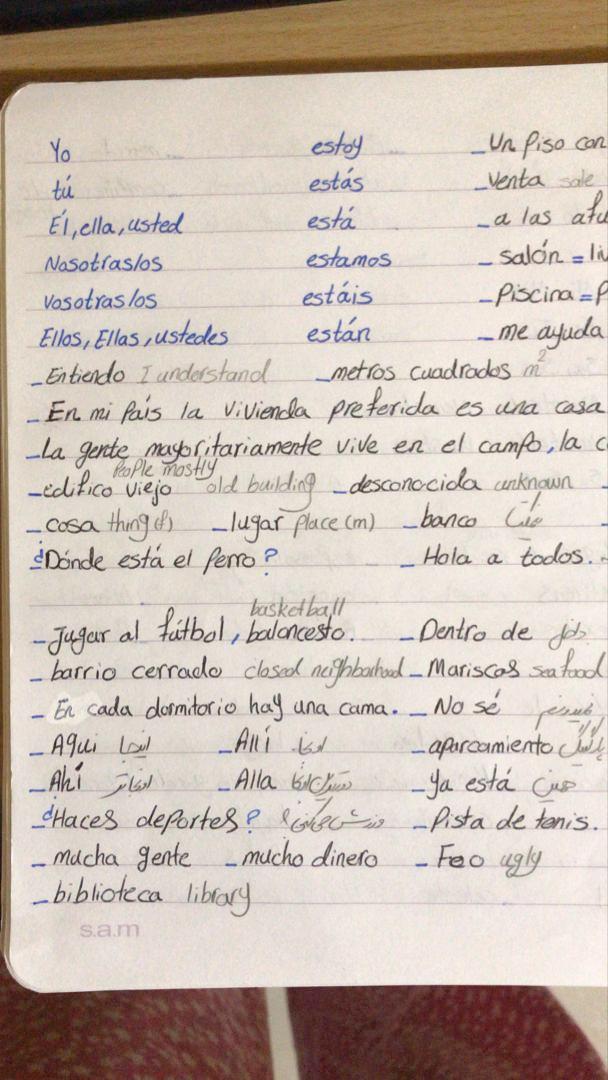 Yo estoy _ Un Piso con
tú estás _ Venta sale
Él, ella, usted está _ a las afu
Nosotras/os estamos _ salón = liv
Vosotras/os estáis _ Piscina = P
Ellos, Ellas, ustedes están _ me ayuda
_ Entiendo I understand _ metros cuadrados m²
_ En mi País la vivienda preferida es una casa
_ La gente mayoritariamente vive en el campo, la c
People mostly
_ edifico viejo old building _ desconocida unknown
_ cosa thing (f) _ lugar place (m) _ banco
¿Dónde está el Perro? _ Hola a todos.
basketball
_ Jugar al fútbol, baloncesto. _ Dentro de
_ barrio cerrado closed neighborhood _ Mariscos sea food
_ En cada dormitorio hay una cama. _ No sé نمیدونم
_ Aqui اینجا _ Allí اونجا _ aparcamiento پارکینگ
_ Ahí اونجاتر _ Alla _ Ya está همین
¿Haces deportes? ورزش میکنی؟ _ Pista de tenis.
_ mucha gente _ mucho dinero _ Feo ugly
_ biblioteca library
s.a.m